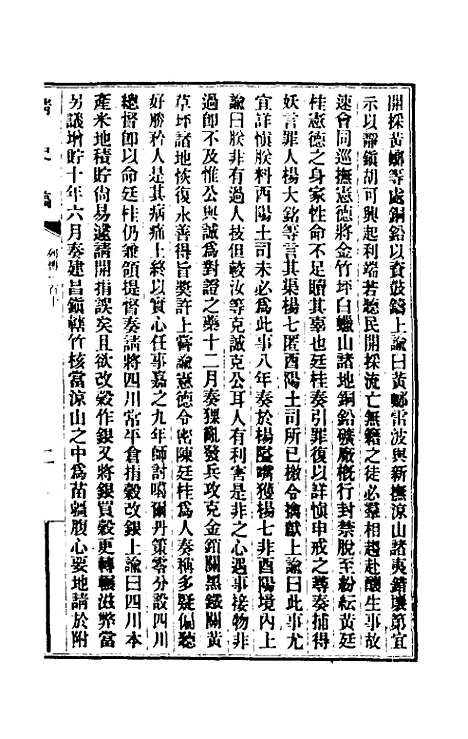 開採黃螂等處銅鉛以資鼓鑄上諭曰黃螂雷波與新撫涼山諸夷錯壤第宜
示以靜鎮胡可興起利端若聽民開採流亡無籍之徒必羣相趨赴釀生事故
速會同巡撫憲德將金竹坪白蠟山諸地銅鉛礦廠槪行封禁脫至紛紜黃廷
桂憲德之身家性命不足贖其辜也廷桂奏引罪復以詳愼申戒之尋奏捕得
妖言罪人楊大銘等言其渠楊七匿酉陽土司所已檄令擒獻上諭曰此事尤
宜詳愼朕料酉陽土司未必爲此事八年奏於楊隘嘴獲楊七非酉陽境內上
諭曰朕非有過人技但較汝等克誠克公耳人有利害是非之心遇事接物非
過卽不及惟公與誠爲對證之藥十二月奏猓亂發兵攻克金鎖關黑鐵關黃
草坪諸地恢復永善得旨獎許上嘗諭憲德令密陳廷桂爲人奏稱多疑偏聽
好勝矜人是其病痛上終以實心任事嘉之九年師討噶爾丹策零分設四川
總督卽以命廷桂仍兼領提督奏請將四川常平倉捐穀改銀上諭曰四川本
產米地積貯尙易遽請開捐誤矣且欲改穀作銀又將銀買穀更轉輾滋弊當
另議增貯十年六月奏建昌鎮轄竹核當涼山之中爲苗疆腹心要地請於附
淸史稿
列傳一百十
二